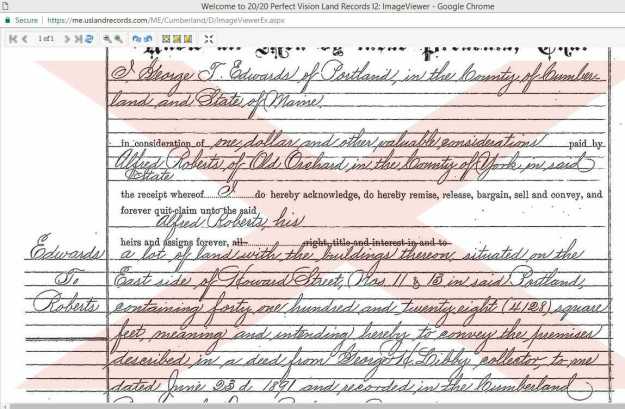 Welcome to 20/20 Perfect Vision Land Records I2: ImageViewer - Google Chrome
Secure https://me.uslandrecords.com/ME/Cumberland/D/ImageViewerEx.aspx
1 of 1
Know all Men by these Presents, That
I, George T. Edwards of Portland, in the County of Cumber-
land and State of Maine,
in consideration of one dollar and other valuable considerations paid by
Alfred Roberts, of Old Orchard, in the County of York in said
State
the receipt whereof I do hereby acknowledge, do hereby remise, release, bargain, sell and convey, and
forever quit-claim unto the said
Alfred Roberts, his
heirs and assigns forever, all right, title and interest in and to
Edwards a lot of land with the buildings thereon, situated on the
To East side of Howard Street, Nos 11 & 13 in said Portland,
Roberts containing forty one hundred and twenty eight (4128) square
feet, meaning and intending hereby to convey the premises
described in a deed from George H. Libby collector, to me
dated June 23d 1891 and recorded in the Cumberland